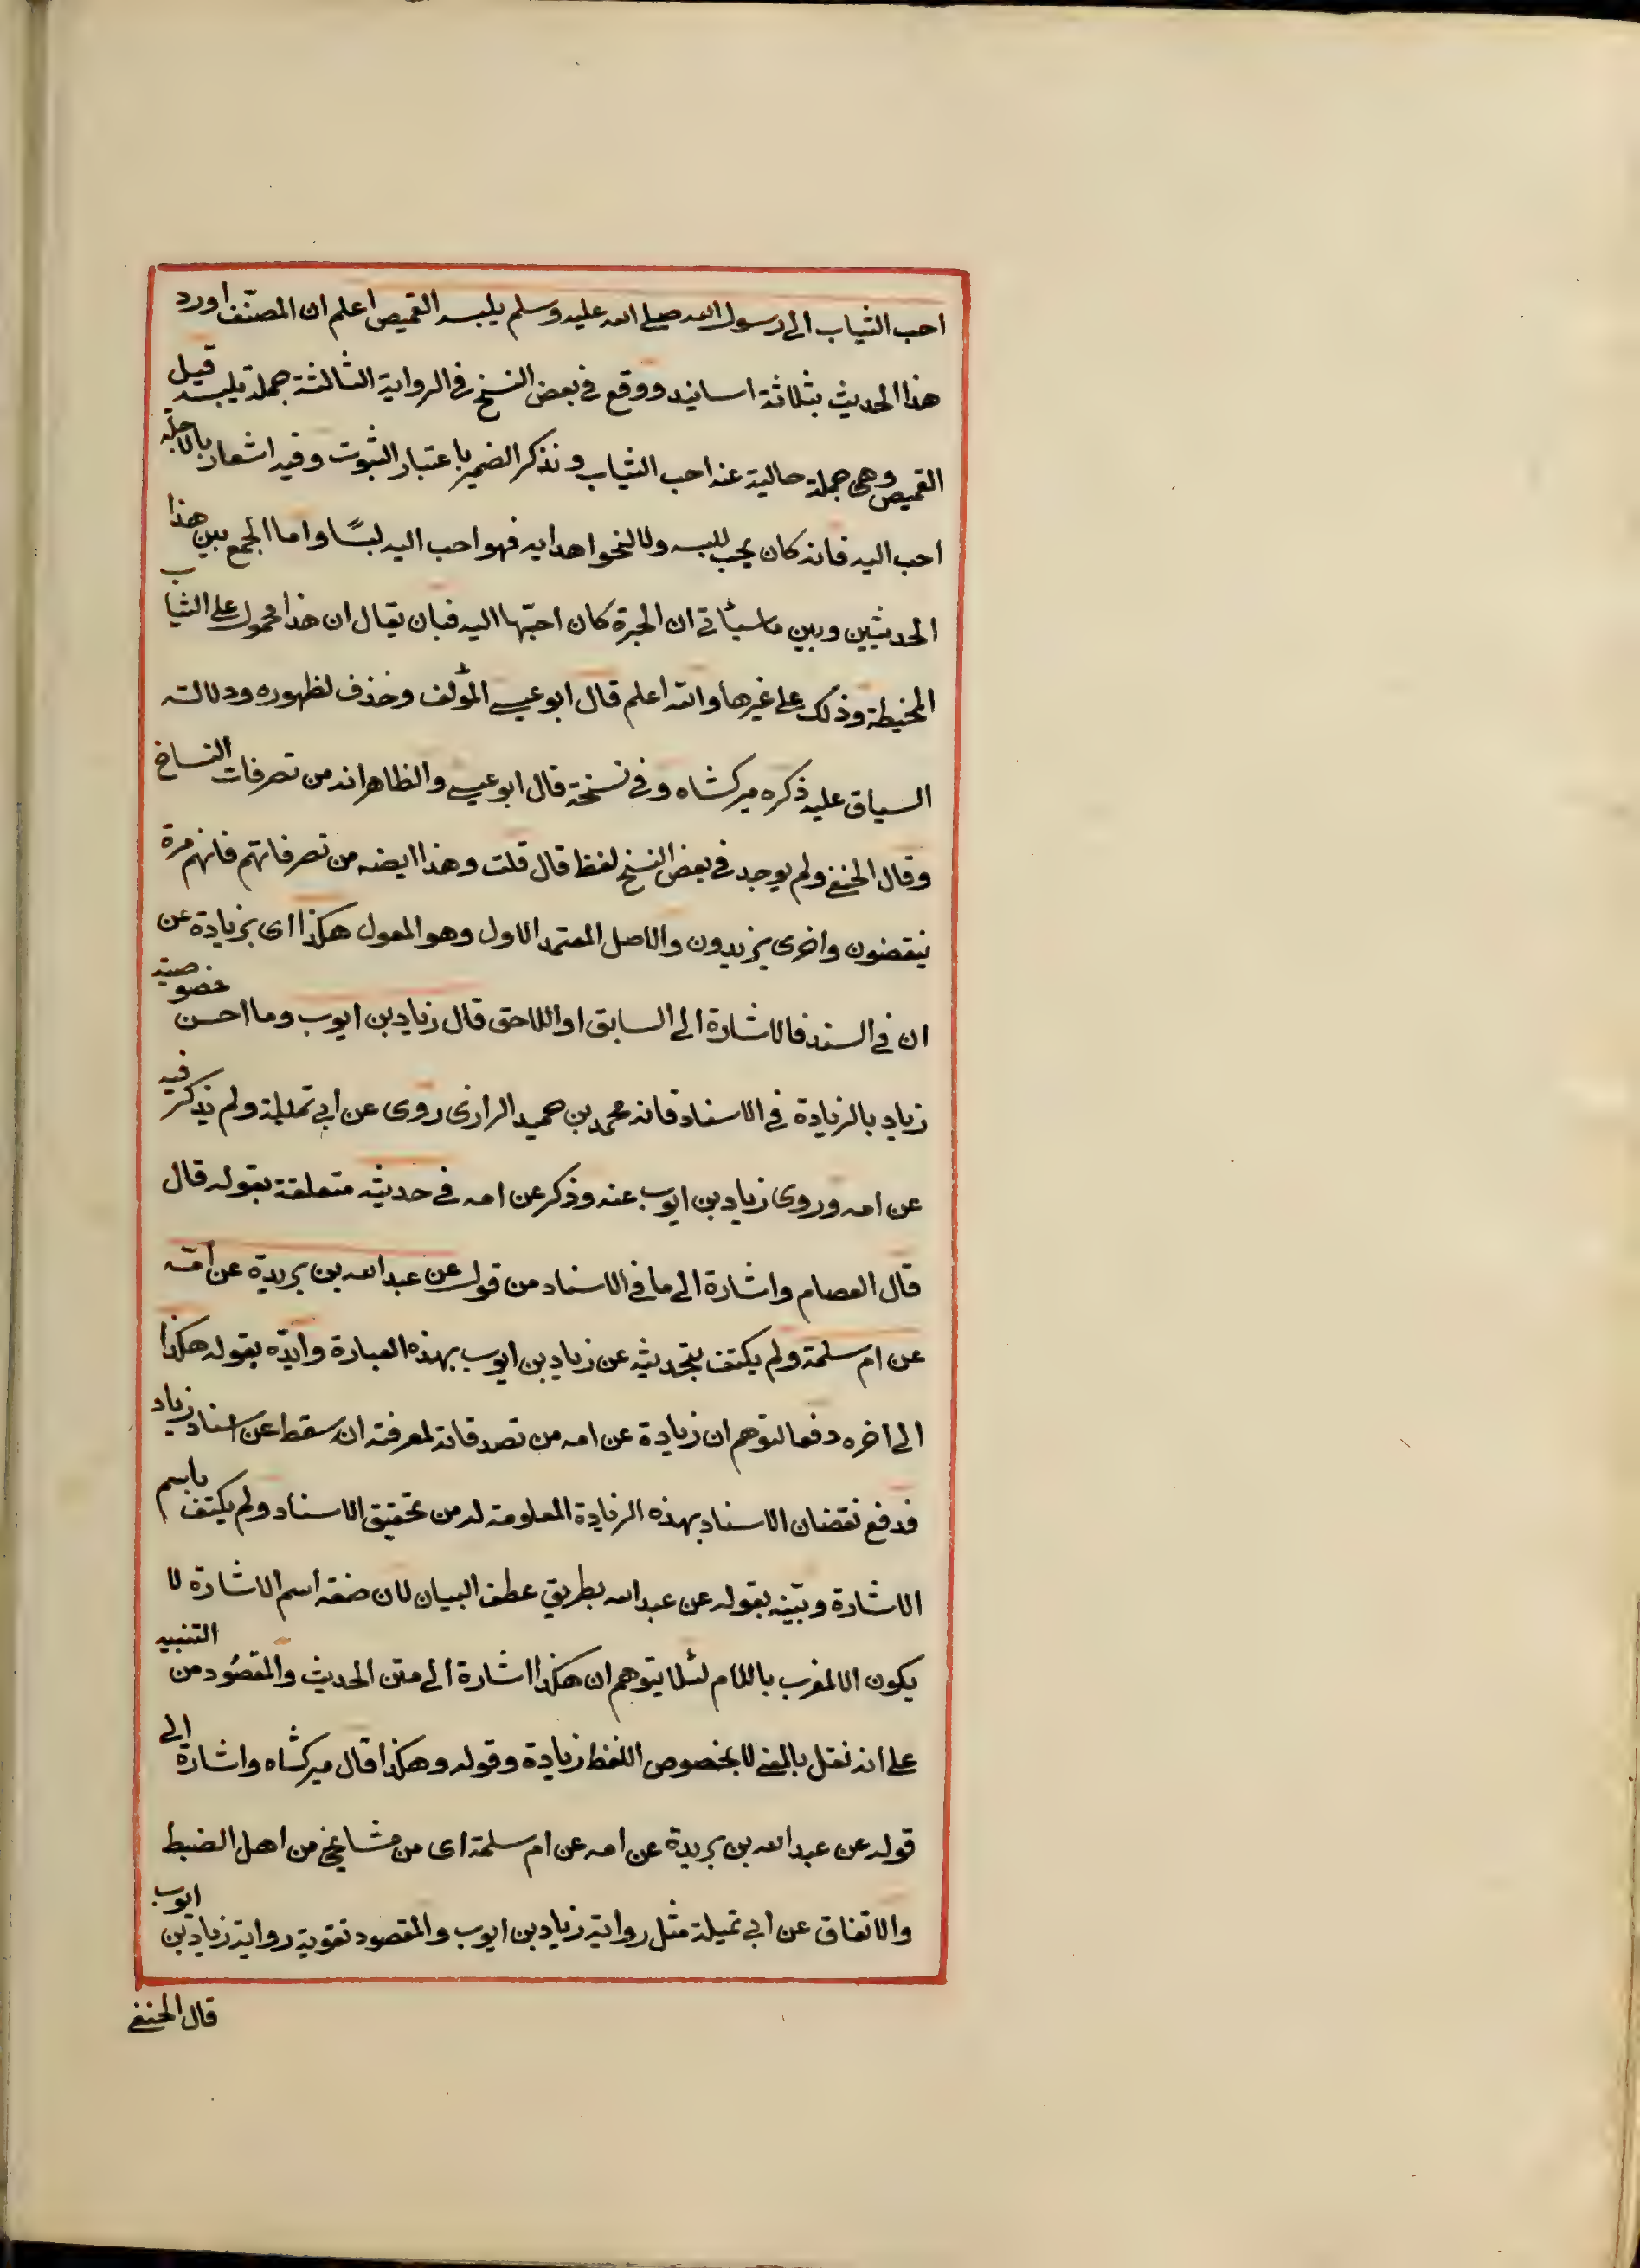 احب الثياب الى رسول الله صلى الله عليه وسلم يلبسه القميص اعلم ان المصنّف اورد
هذا الحديث بثلاثة اسانيد ووقع في بعض النسخ في الرواية الثالثة جملة يلبسه قيل
القميص وهى جملة حالية عند احب الثياب و نذكر الضمير باعتبار الثبوت وفيه اشعار بالاجله
احب اليه فانه كان يحب للبسه ولا لنحو اهدايه فهو احب اليه لبسًا واما الجمع بين هذا
الحديثين وبين ما سيأتى ان الحبرة كان احبّها اليه فبان يقال ان هذا محمول على الثياب
المخيطة وذلك على غيرها والله اعلم قال ابو عيسى المؤلف وحذف لظهوره ودلالته
السياق عليه ذكره ميركشاه وفي نسخة قال ابو عيسى والظاهر انه من تصرفات النساخ
وقال الحنفى ولم يوجد في بعض النسخ لفظ قال قلت وهذا ايضه من تصرفاتهم فانهم مرة
ينقضون واخرى يزيدون والاصل المعتمد الاول وهو المعول هكذا اى بزيادة عن
ان في السند فالاشارة الى السابق او اللاحق قال زياد بن ايوب وما احسن خصوصية
زياد بالزيادة في الاسناد فانه محمد بن حميد الرازى روى عن ابى تميلة ولم يذكر فيه
عن امه وروى زياد بن ايوب عنه وذكر عن امه في حديثه متعلقة بقوله قال
قال العصام واشارة الى ما في الاسناد من قوله عن عبد الله بن بريدة عن امّه
عن ام سلمة ولم يكتف بتحديثه عن زياد بن ايوب بهذه العبارة وايّده بقوله هكذا
الى اخره دفعا لتوهم ان زيادة عن امه من تصدقاته لمعرفته انه سقط عن اسناد زياد
فدفع نقضان الاسناد بهذه الزيادة المعلومة له من تحقيق الاسناد ولم يكتف باسم
الاشارة وبيّنه بقوله عن عبد الله بطريق عطف البيان لان صفة اسم الاشارة لا
يكون الا لمعرب باللام لئلا يتوهم ان هكذا اشارة الى متن الحديث والمقصُود من التنبيه
على انه نقل بالمعنى لا بخصوص اللفظ زيادة وقوله وهكذا قال ميركشاه واشارة الى
قوله عن عبد الله بن بريدة عن امه عن ام سلمة اى من مشايخ من اهل الضبط
والاتفاق عن ابى تميلة مثل رواية زياد بن ايوب والمقصود تقوية رواية زياد بن ايوب
قال الحنفى